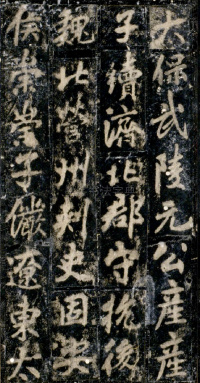 大保武陵元公產產
子續濟北郡守後
魏北營州刺史固安
侯崇崇子儼遼東太